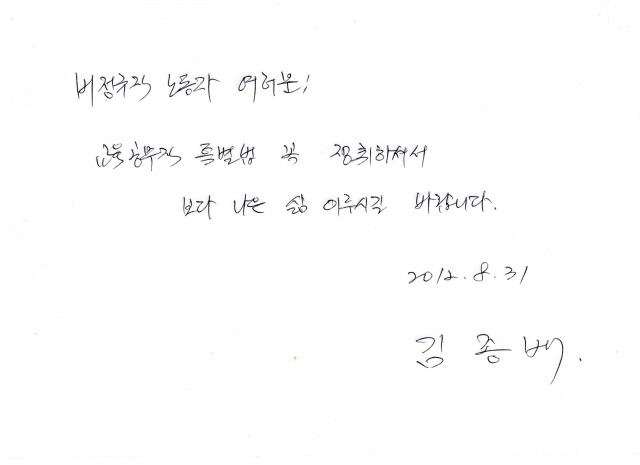 비정규직 노동자 여러분!
교육공무직 특별법 꼭 쟁취하셔서
보다 나은 삶 이루시길 바랍니다.
2012.8.31
김종배.